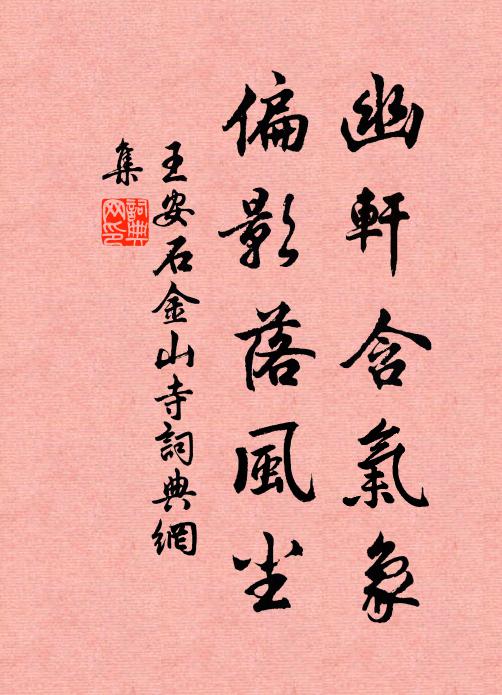 幽軒含氣象
偏影落風尘
王安石金山寺詞典網
集
詞典网印